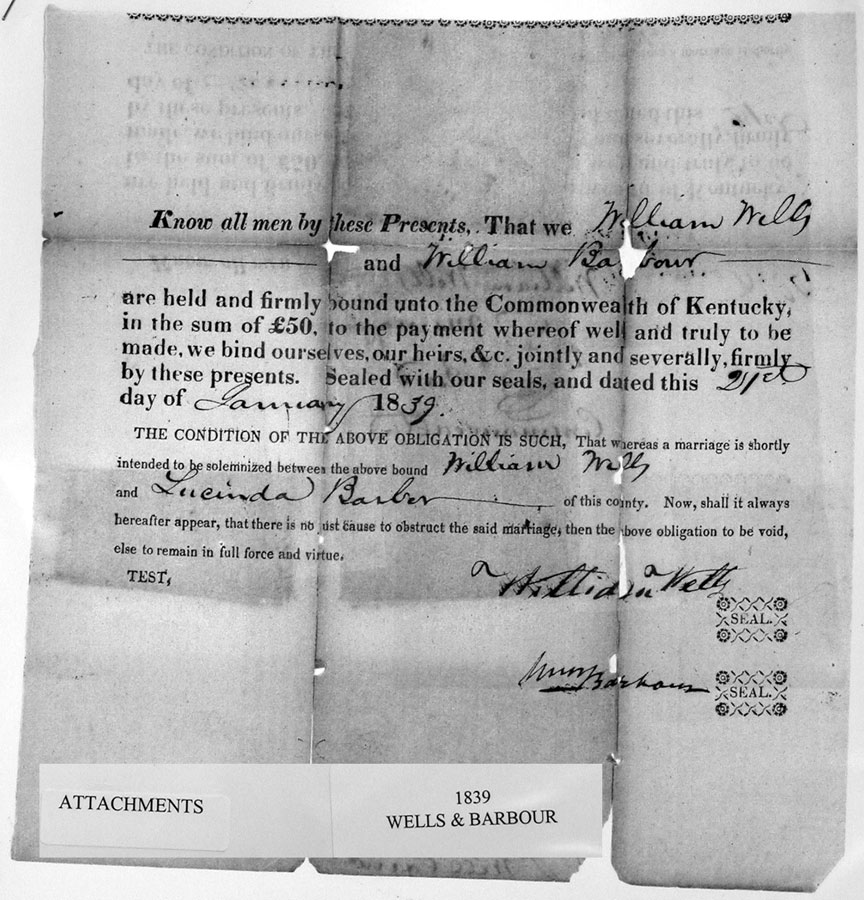 Know all men by these Presents, That we William Wells
and William Barbour
are held and firmly bound unto the Commonwealth of Kentucky,
in the sum of £50, to the payment whereof well and truly to be
made, we bind ourselves, our heirs, &c. jointly and severally, firmly
by these presents. Sealed with our seals, and dated this 21st
day of January 1839.
THE CONDITION OF THE ABOVE OBLIGATION IS SUCH, That whereas a marriage is shortly
intended to be solemnized between the above bound William Wells
and Lucinda Barber of this county. Now, shall it always
hereafter appear, that there is no just cause to obstruct the said marriage, then the above obligation to be void,
else to remain in full force and virtue.
TEST,
William Wells
SEAL.
Wm Barbour
SEAL.
ATTACHMENTS
1839
WELLS & BARBOUR